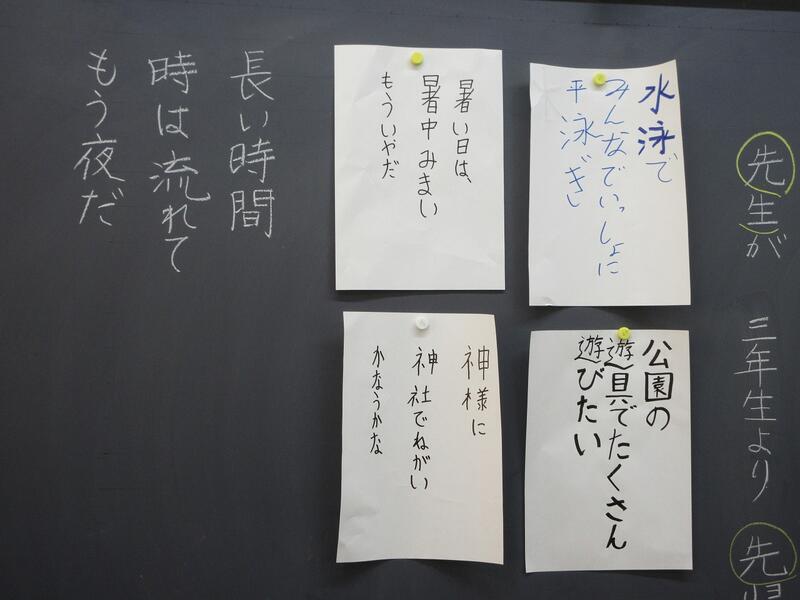 先生が
三年生より
先
水泳で
みんなでいっしょに
平泳ぎ
公園の
遊具でたくさん
遊びたい
暑い日は、
暑中みまい
もういやだ
神様に
神社でねがい
かなうかな
長い時間
時は流れて
もう夜だ